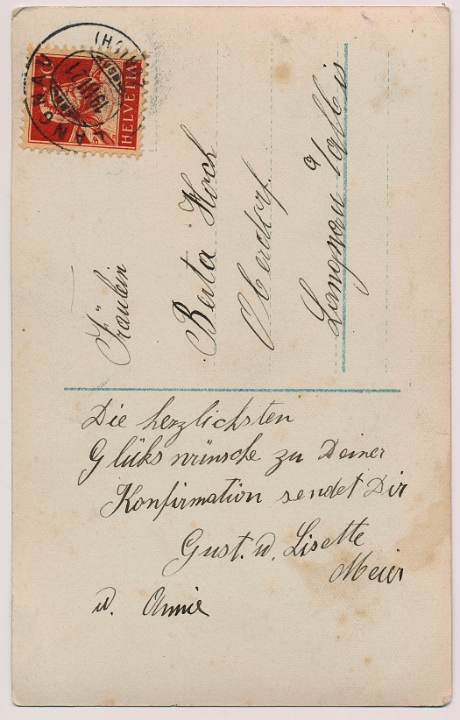 HELVETIA
LANGNAU
Fräulein
Berta Hoch
Oberdorf.
Langnau a/Albis
Die herzlichsten
Glükswünsche zu Deiner
Konfirmation sendet Dir
Gust. u. Lisette
Meier
u. Annie